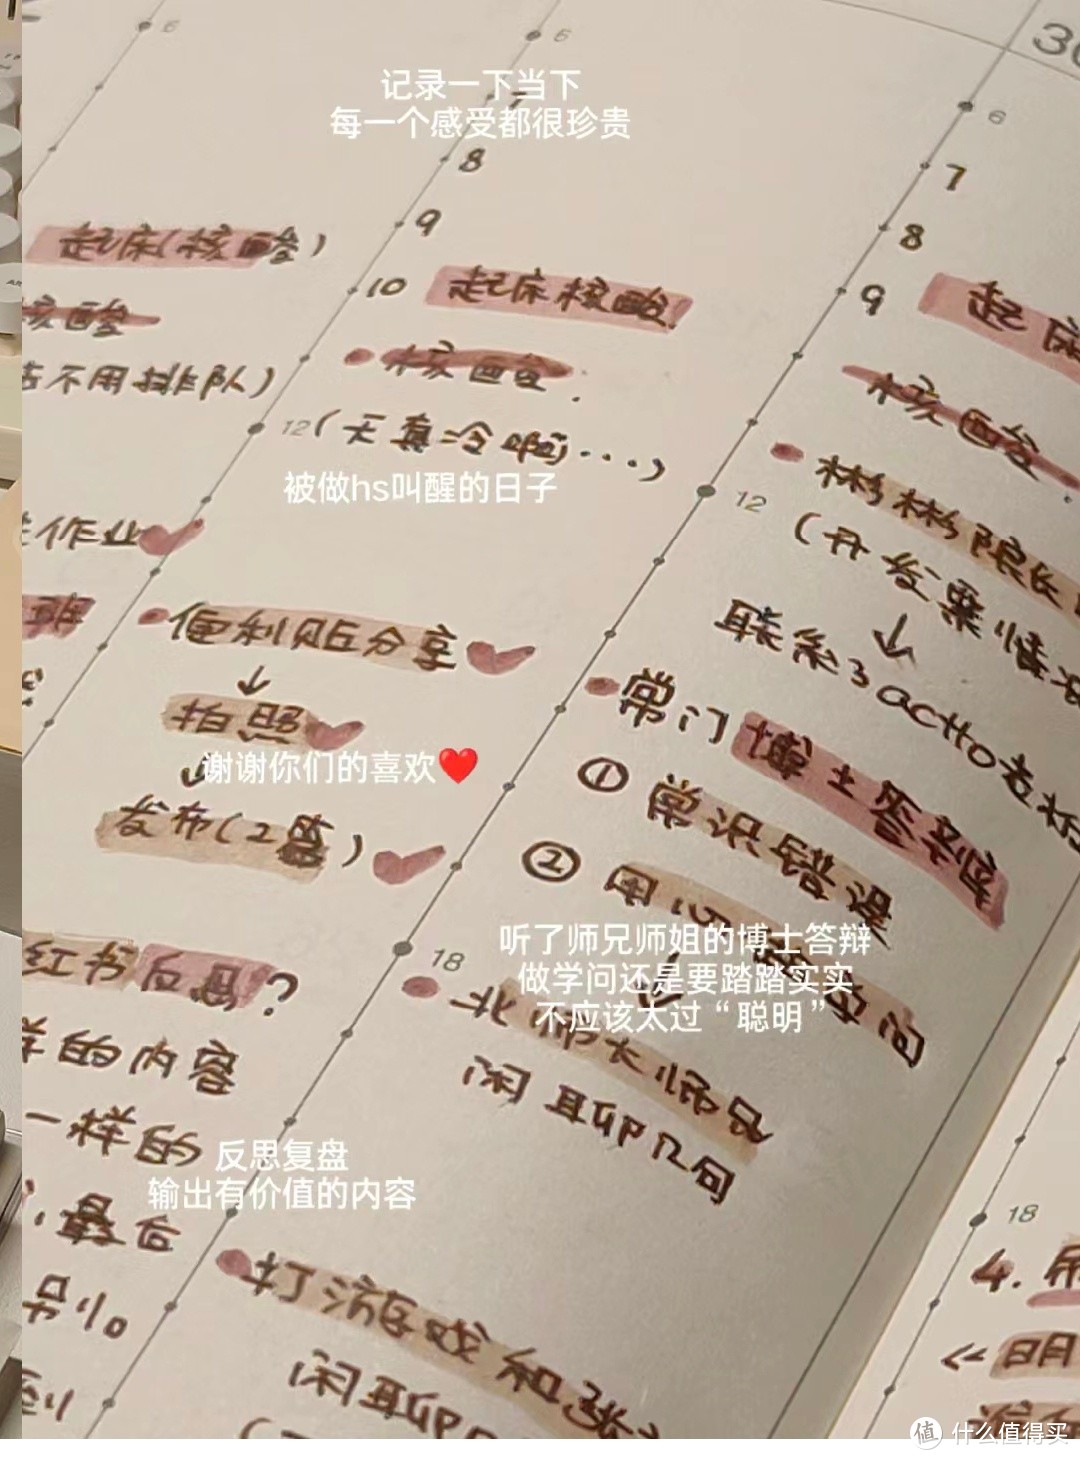 6
5
30
记录一下当下
7
每一个感受都很珍贵
6
8
7
9
8
起床(核酸)
10 起床核酸
9 起床
核酸
核酸.
核酸
不用排队)
12(天真冷啊...)
被做hs叫醒的日子
彬彬院长
12
(开发票情况
作业
联系了
班
便利贴分享
↓
↓
常门博士答辩
拍照
谢谢你们的喜欢❤️
① 常识错误
发布(2篇)
② 用心
听了师兄师姐的博士答辩
18
做学问还是要踏踏实实
不应该太过“聪明”
红书反思?
北师大师兄
闲聊几句
样的内容
一样的
反思复盘
输出有价值的内容
最后
18
别心
打游戏和张
4.
闲聊
《明
到
值 什么值得买